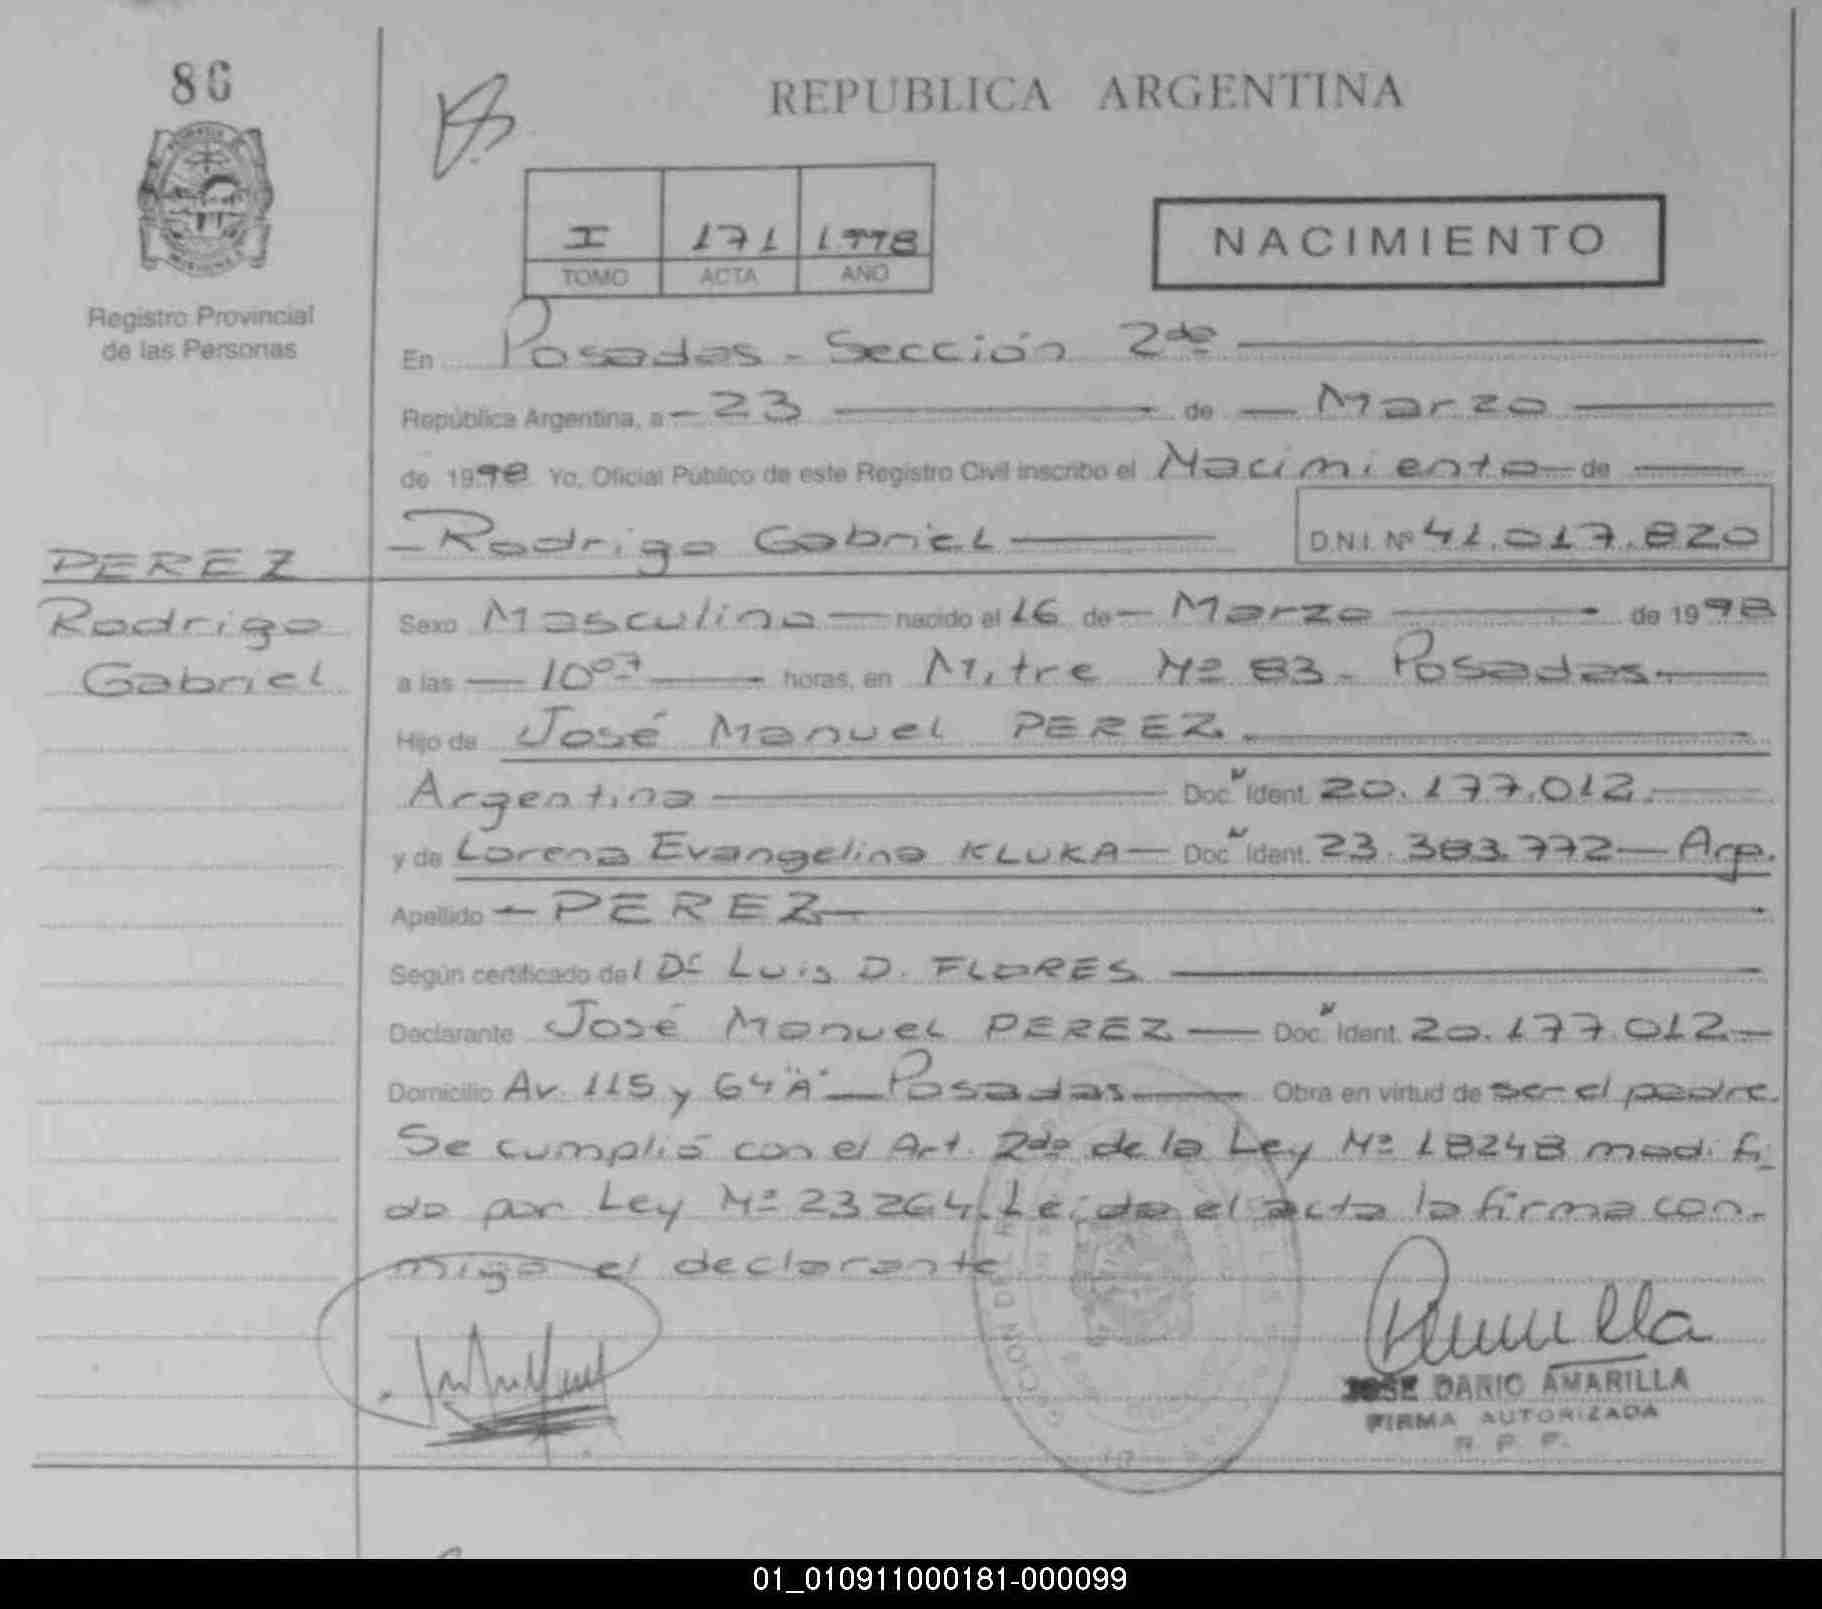 86
REPUBLICA ARGENTINA
I 171 1998
TOMO ACTA AÑO
NACIMIENTO
Registro Provincial
de las Personas
En Posadas - Sección 2da
República Argentina, a - 23 de Marzo
de 1998 Yo, Oficial Público de este Registro Civil inscribo el Nacimiento de
- Rodrigo Gabriel D.N.I. Nº 41.017.820
PEREZ
Rodrigo
Gabriel
Sexo Masculino nacido el 16 de Marzo de 1998
a las 10⁰⁷ horas, en Mitre Nº 83 - Posadas
Hijo de José Manuel PEREZ
Argentino Doc. Ident. 20.177.012
y de Lorena Evangelina KLUKA Doc. Ident. 23.383.772 Arg.
Apellido PEREZ
Según certificado del Dr Luis D. FLORES
Declarante José Manuel PEREZ Doc. Ident. 20.177.012
Domicilio Av. 115 y 64 "A" Posadas Obra en virtud de ser el padre.
Se cumplió con el Art. 2do de la Ley Nº 18248 modifi
do por Ley Nº 23264. Leída el acta la firma con-
migo el declarante
JOSE DARIO AMARILLA
FIRMA AUTORIZADA
R. P. P.
01_010911000181-000099